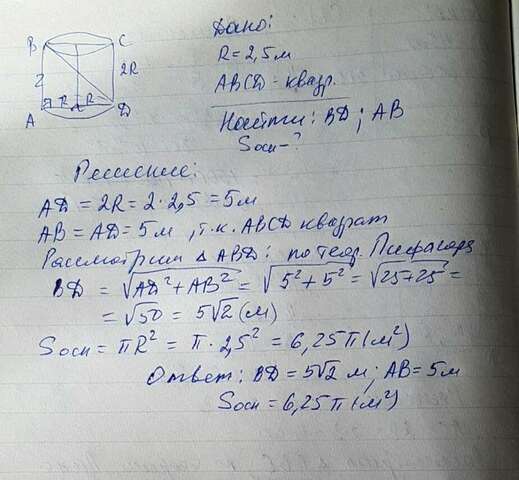 B C
2 2R
R R
A D
Дано:
R = 2,5 м
ABCD - квадр.
Найти: BD ; AB
Sосн - ?
Решение:
AD = 2R = 2 · 2,5 = 5 м
AB = AD = 5 м , т.к. ABCD квадрат
Рассмотрим Δ ABD: по теор. Пифагора
BD = √AD² + AB² = √5² + 5² = √25 + 25 =
= √50 = 5√2 (м)
Sосн = πR² = π · 2,5² = 6,25π (м²)
Ответ: BD = 5√2 м ; AB = 5 м
Sосн = 6,25π (м²)